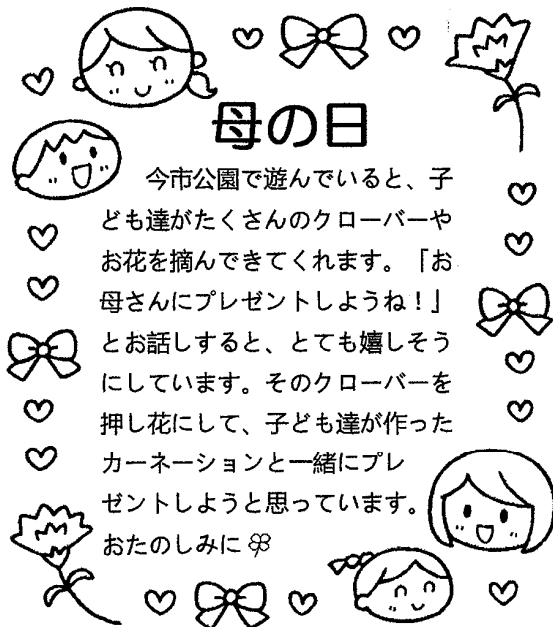 母の日
今市公園で遊んでいると、子
ども達がたくさんのクローバーや
お花を摘んできてくれます。「お
母さんにプレゼントしようね！」
とお話しすると、とても嬉しそう
にしています。そのクローバーを
押し花にして、子ども達が作った
カーネーションと一緒にプレ
ゼントしようと思っています。
おたのしみに